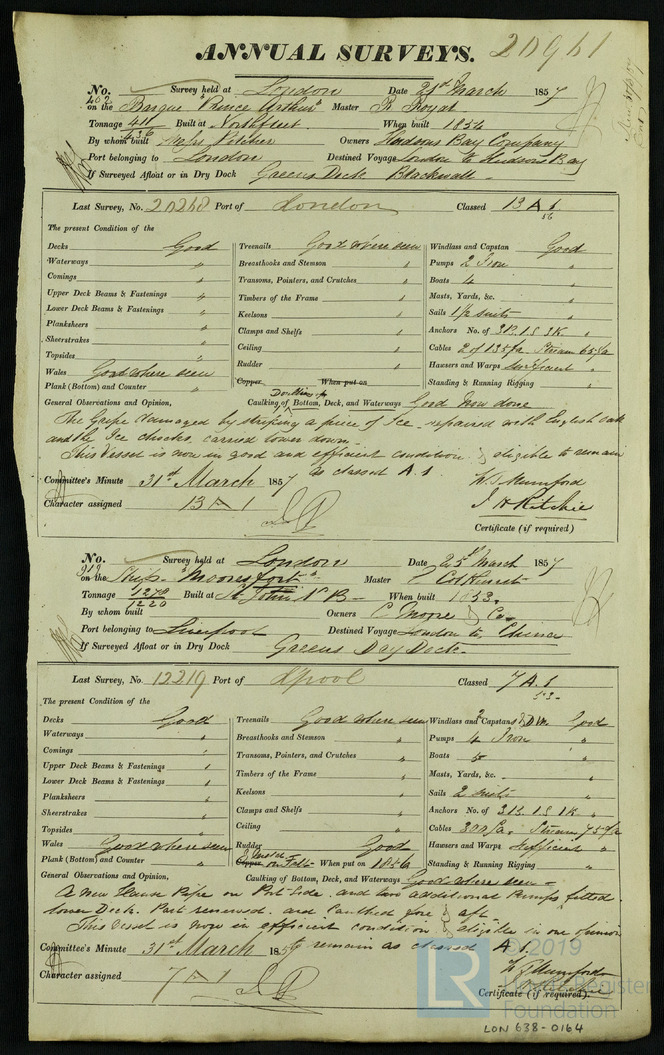 ANNUAL SURVEYS. 20961
No. 462 Survey held at London Date 21st March 1857
on the Barque "Prince Arthur" Master R Royal
Tonnage 411 436 Built at Northfleet When built 1854
By whom built Messrs Pitcher Owners Hudsons Bay Company
Port belonging to London Destined Voyage London to Hudsons Bay
If Surveyed Afloat or in Dry Dock Greens Dock Blackwall
Last Survey, No. 20268 Port of London Classed 13 A 1
56
The present Condition of the
Decks Good Treenails Good where seen Windlass and Capstan Good
Waterways " Breasthooks and Stemson " Pumps 2 Iron "
Comings " Transoms, Pointers, and Crutches " Boats 4 "
Upper Deck Beams & Fastenings " Timbers of the Frame " Masts, Yards, &c. "
Lower Deck Beams & Fastenings " Keelsons " Sails 1½ suits "
Planksheers " Clamps and Shelfs " Anchors No. of 3B.1S.3K "
Sheerstrakes " Ceiling " Cables 2 of 135fa. Stream 65fa
Topsides " Rudder " Hawsers and Warps Sufficient "
Wales Good where seen Copper When put on Standing & Running Rigging "
Plank (Bottom) and Counter "
General Observations and Opinion, Caulking of Bottom, Deck, and Waterways Good Now done
The Gripe damaged by striking a piece of Ice - repaired with English Oak
and the Ice chocks, carried lower down -
This Vessel is now in good and efficient condition & eligible to remain
as classed A.1
Committee's Minute 31st March 1857 W. J. Mumford
Character assigned 13 A 1 J H Ritchie
Certificate (if required)
No. 919 Survey held at London Date 25th March 1857
on the Ship "Mooresfort" Master
Tonnage 1278 1220 Built at St. John N B - When built 1853
By whom built Owners C Moore & Co
Port belonging to Liverpool Destined Voyage London to China
If Surveyed Afloat or in Dry Dock Greens Dry Dock -
Last Survey, No. 12219 Port of Lpool Classed 7 A.1
53-
The present Condition of the
Decks Good Treenails Good where seen Windlass and Capstan Good
Waterways " Breasthooks and Stemson " Pumps 4 Iron "
Comings " Transoms, Pointers, and Crutches " Boats 5 "
Upper Deck Beams & Fastenings " Timbers of the Frame " Masts, Yards, &c. "
Lower Deck Beams & Fastenings " Keelsons " Sails 2 suits "
Planksheers " Clamps and Shelfs " Anchors No. of 3B.1S.1K "
Sheerstrakes " Ceiling " Cables 300 fa. Stream 75fa
Topsides " Rudder Good Hawsers and Warps Sufficient "
Wales Good where seen Copper on Felt When put on 1856 Standing & Running Rigging "
Plank (Bottom) and Counter "
General Observations and Opinion, Caulking of Bottom, Deck, and Waterways Good where seen -
A new Hawse Pipe on Port Side. and two additional Pumps fitted.
lower Deck. Part renewed. and Caulked fore & aft.
This Vessel is now in efficient condition, & eligible in our opinion
to remain as classed A 1.
Committee's Minute 31st March 185 W. J. Mumford
Character assigned 7 A 1
Certificate (if required).
© 2019
LR Lloyd's Register
Foundation
LON 638-0164